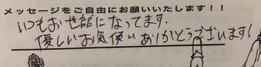 メッセージをご自由にお願いいたします！！
いつもお世話になってます。
優しいお気使いありがとうございます!